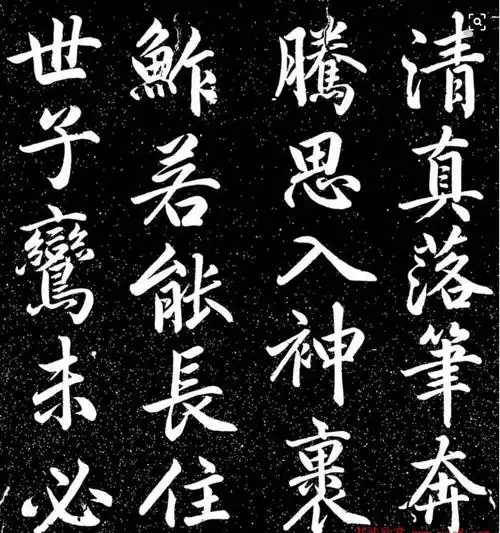 清真落筆奔
騰思入神裹
鮓若能長住
世子鸞未必